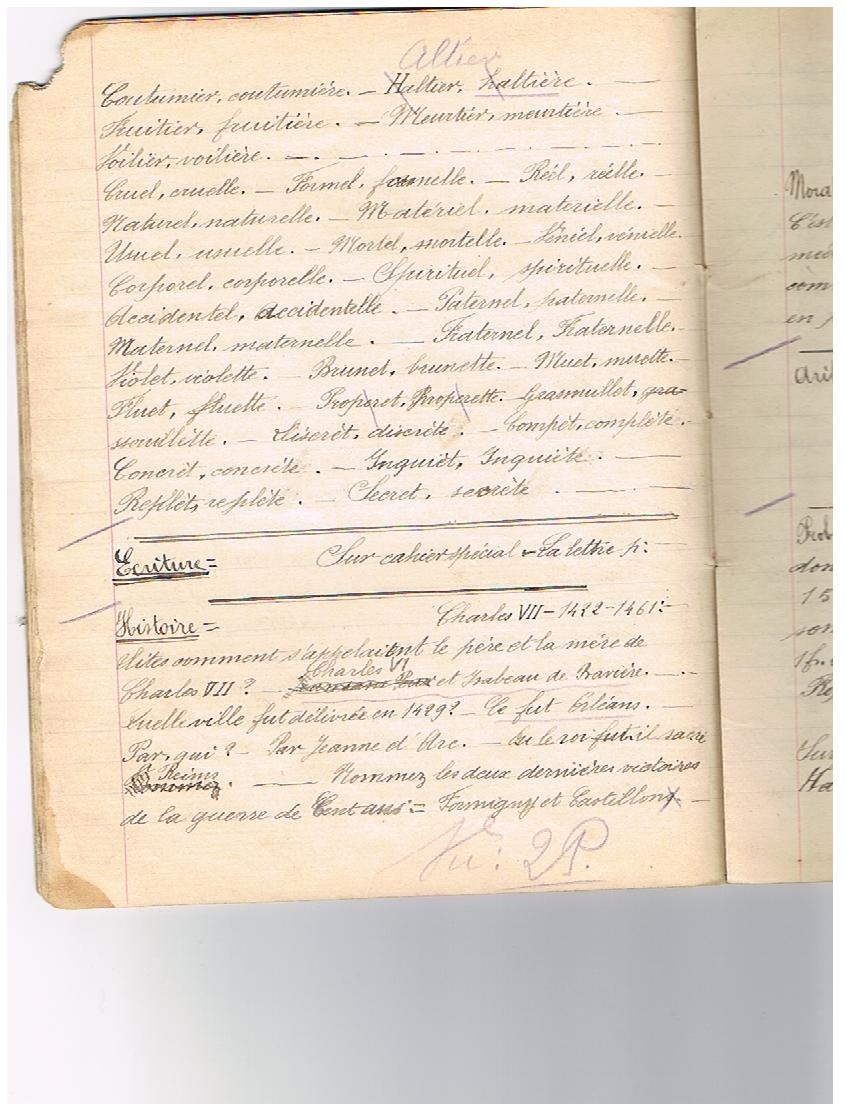 Altier
Coutumier, coutumière. — Haltier, haltière. —
Fruitier, fruitière. — Meurtier, meurtière —
Voilier, voilière. —
Cruel, cruelle. — Formel, formelle. — Réel, réelle. —
Naturel, naturelle. — Matériel, materielle. —
Usuel, usuelle. — Mortel, mortelle. — Véniel, vénielle.
Corporel, corporelle. — Spirituel, spirituelle. —
Accidentel, Accidentelle. — Paternel, paternelle. —
Maternel, maternelle. — Fraternel, Fraternelle. —
Violet, violette. — Brunet, brunette. — Muet, muette. —
Fluet, fluette. — Properet, Properette. — Grasouillet, gra-
ssouillette. — Discrèt, discrète. — Compèt, complète. —
Concrèt, concrète. — Inquièt, Inquiète. —
Replèt, replète. — Secret, secrète —
Ecriture =
Sur cahier spécial — La lettre p: —
Histoire =
Charles VII — 1422 - 1461: —
Dites comment s'appelaient le père et la mère de
Charles VI
Charles VII? — et Isabeau de Bavière. —
Quelle ville fut délivrée en 1429? — Ce fut Orléans. —
Par, qui? — Par Jeanne d'Arc. — Ou le roi fut-il sacré
A Reims
— Nommez les deux dernières victoires
de la guerre de Cent ans: = Formigny et Castillon. —
Vu: 2P.
Mora
C'est
com
en
Arit
Prob
don
15
son
1f.
Re
Sur
Ha